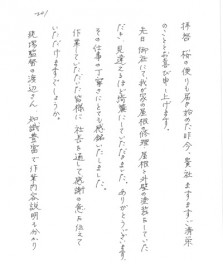 拝啓 桜の便りも届き始めた昨今、貴社ますますご清栄
のこととお喜び申し上げます。
先日 御社にて我が家の屋根の修理、屋根と外壁の塗装をしていた
だき、見違えるほど綺麗にしていただきました。ありがとうございます。
その仕事の丁寧さにとても感銘いたしました。
作業していただいた皆様に 社長を通して感謝の意お伝えて
いただけますでしょうか。
現場監督の渡辺さん 知識豊富で作業内容説明も分かり